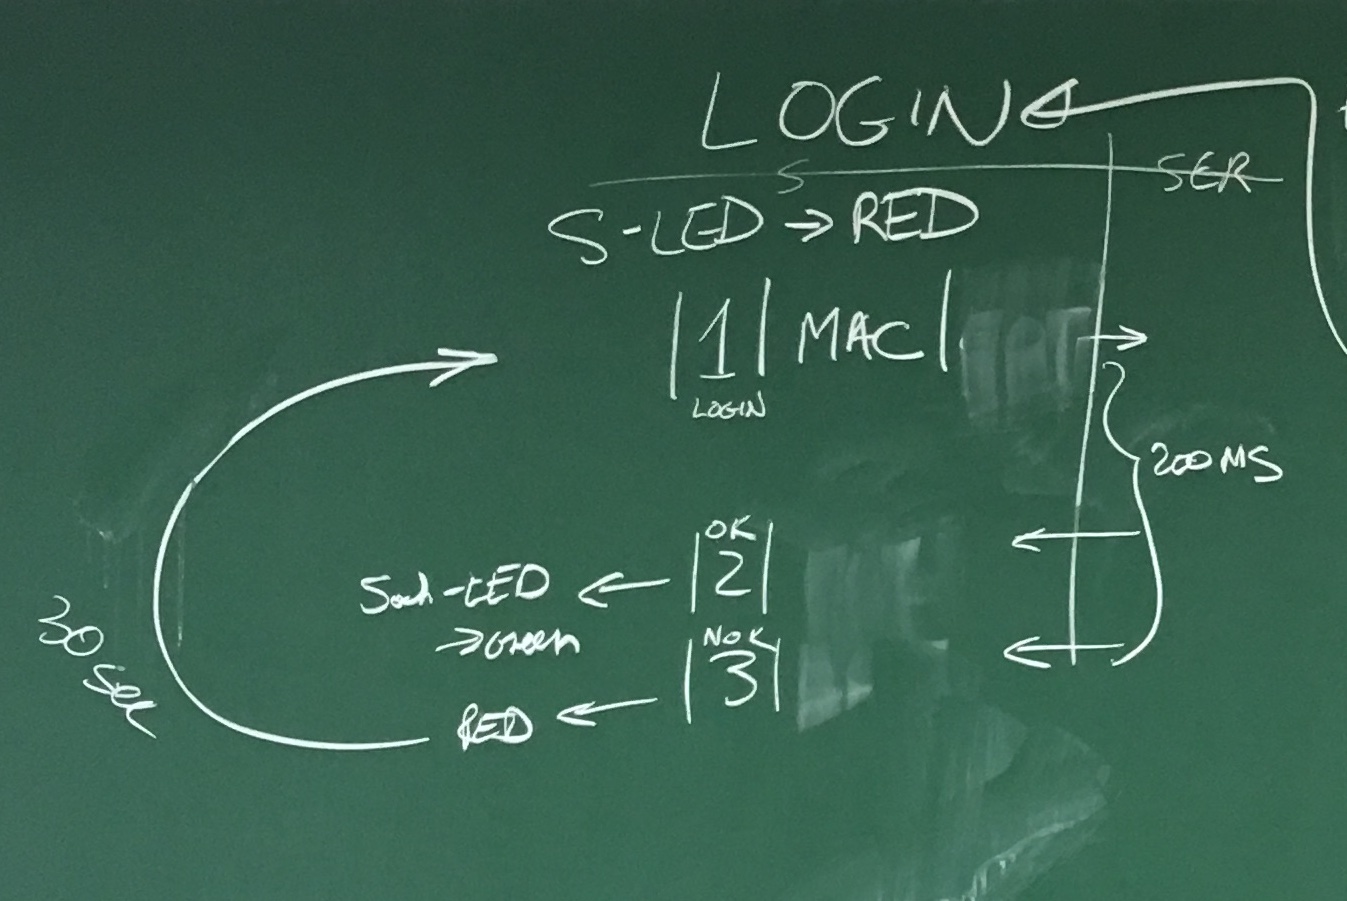 LOGIN
S SER
S-LED → RED
|1| MAC|
LOGIN
200MS
OK
|2|
-LED
→ Green
NOK
|3|
RED
30 sec